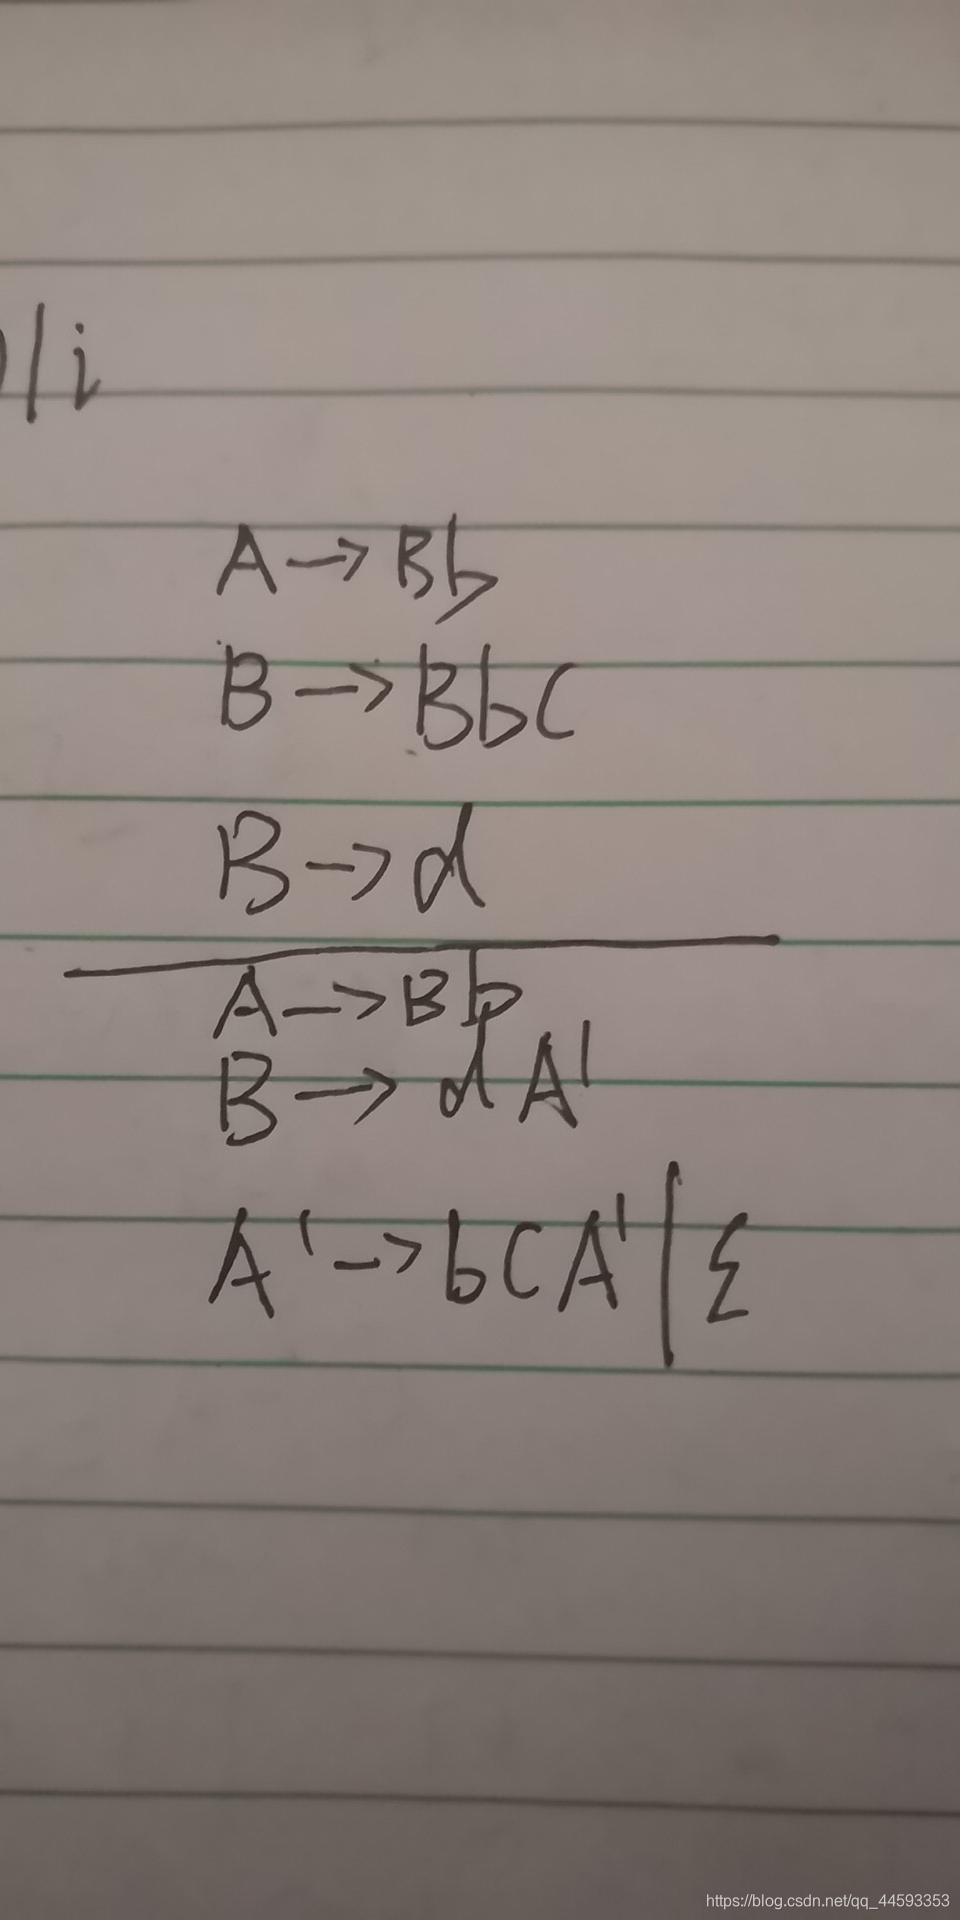 )/i
A → Bb
B → BbC
B → d
A → Bb
B → dA'
A' → bCA' | ε
https://blog.csdn.net/qq_44593353